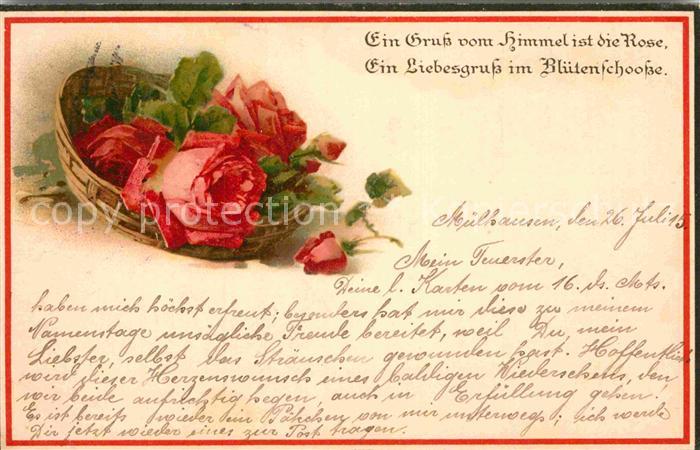 Ein Gruß vom Himmel ist die Rose,
Ein Liebesgruß im Blütenschooße.
copy protection for Ansichtskarten
Mülhausen, den 26. Juli 15.
Mein Teuerster,
Deine l. Karten vom 16. ds. Mts.
haben mich höchst erfreut; besonders hat mir diese zu meinem
Namenstage unsägliche Freude bereitet, weil Du, mein
Liebster, selbst das Sträuschen gewunden hast. Hoffentlich
wird dieser Herzenswunsch eines baldigen Wiedersehens, den
wir beide aufrichtig hegen, auch in Erfüllung gehen.
Es ist bereits wieder ein Päckchen von mir unterwegs; ich werde
Dir jetzt wieder eines zur Post tragen.